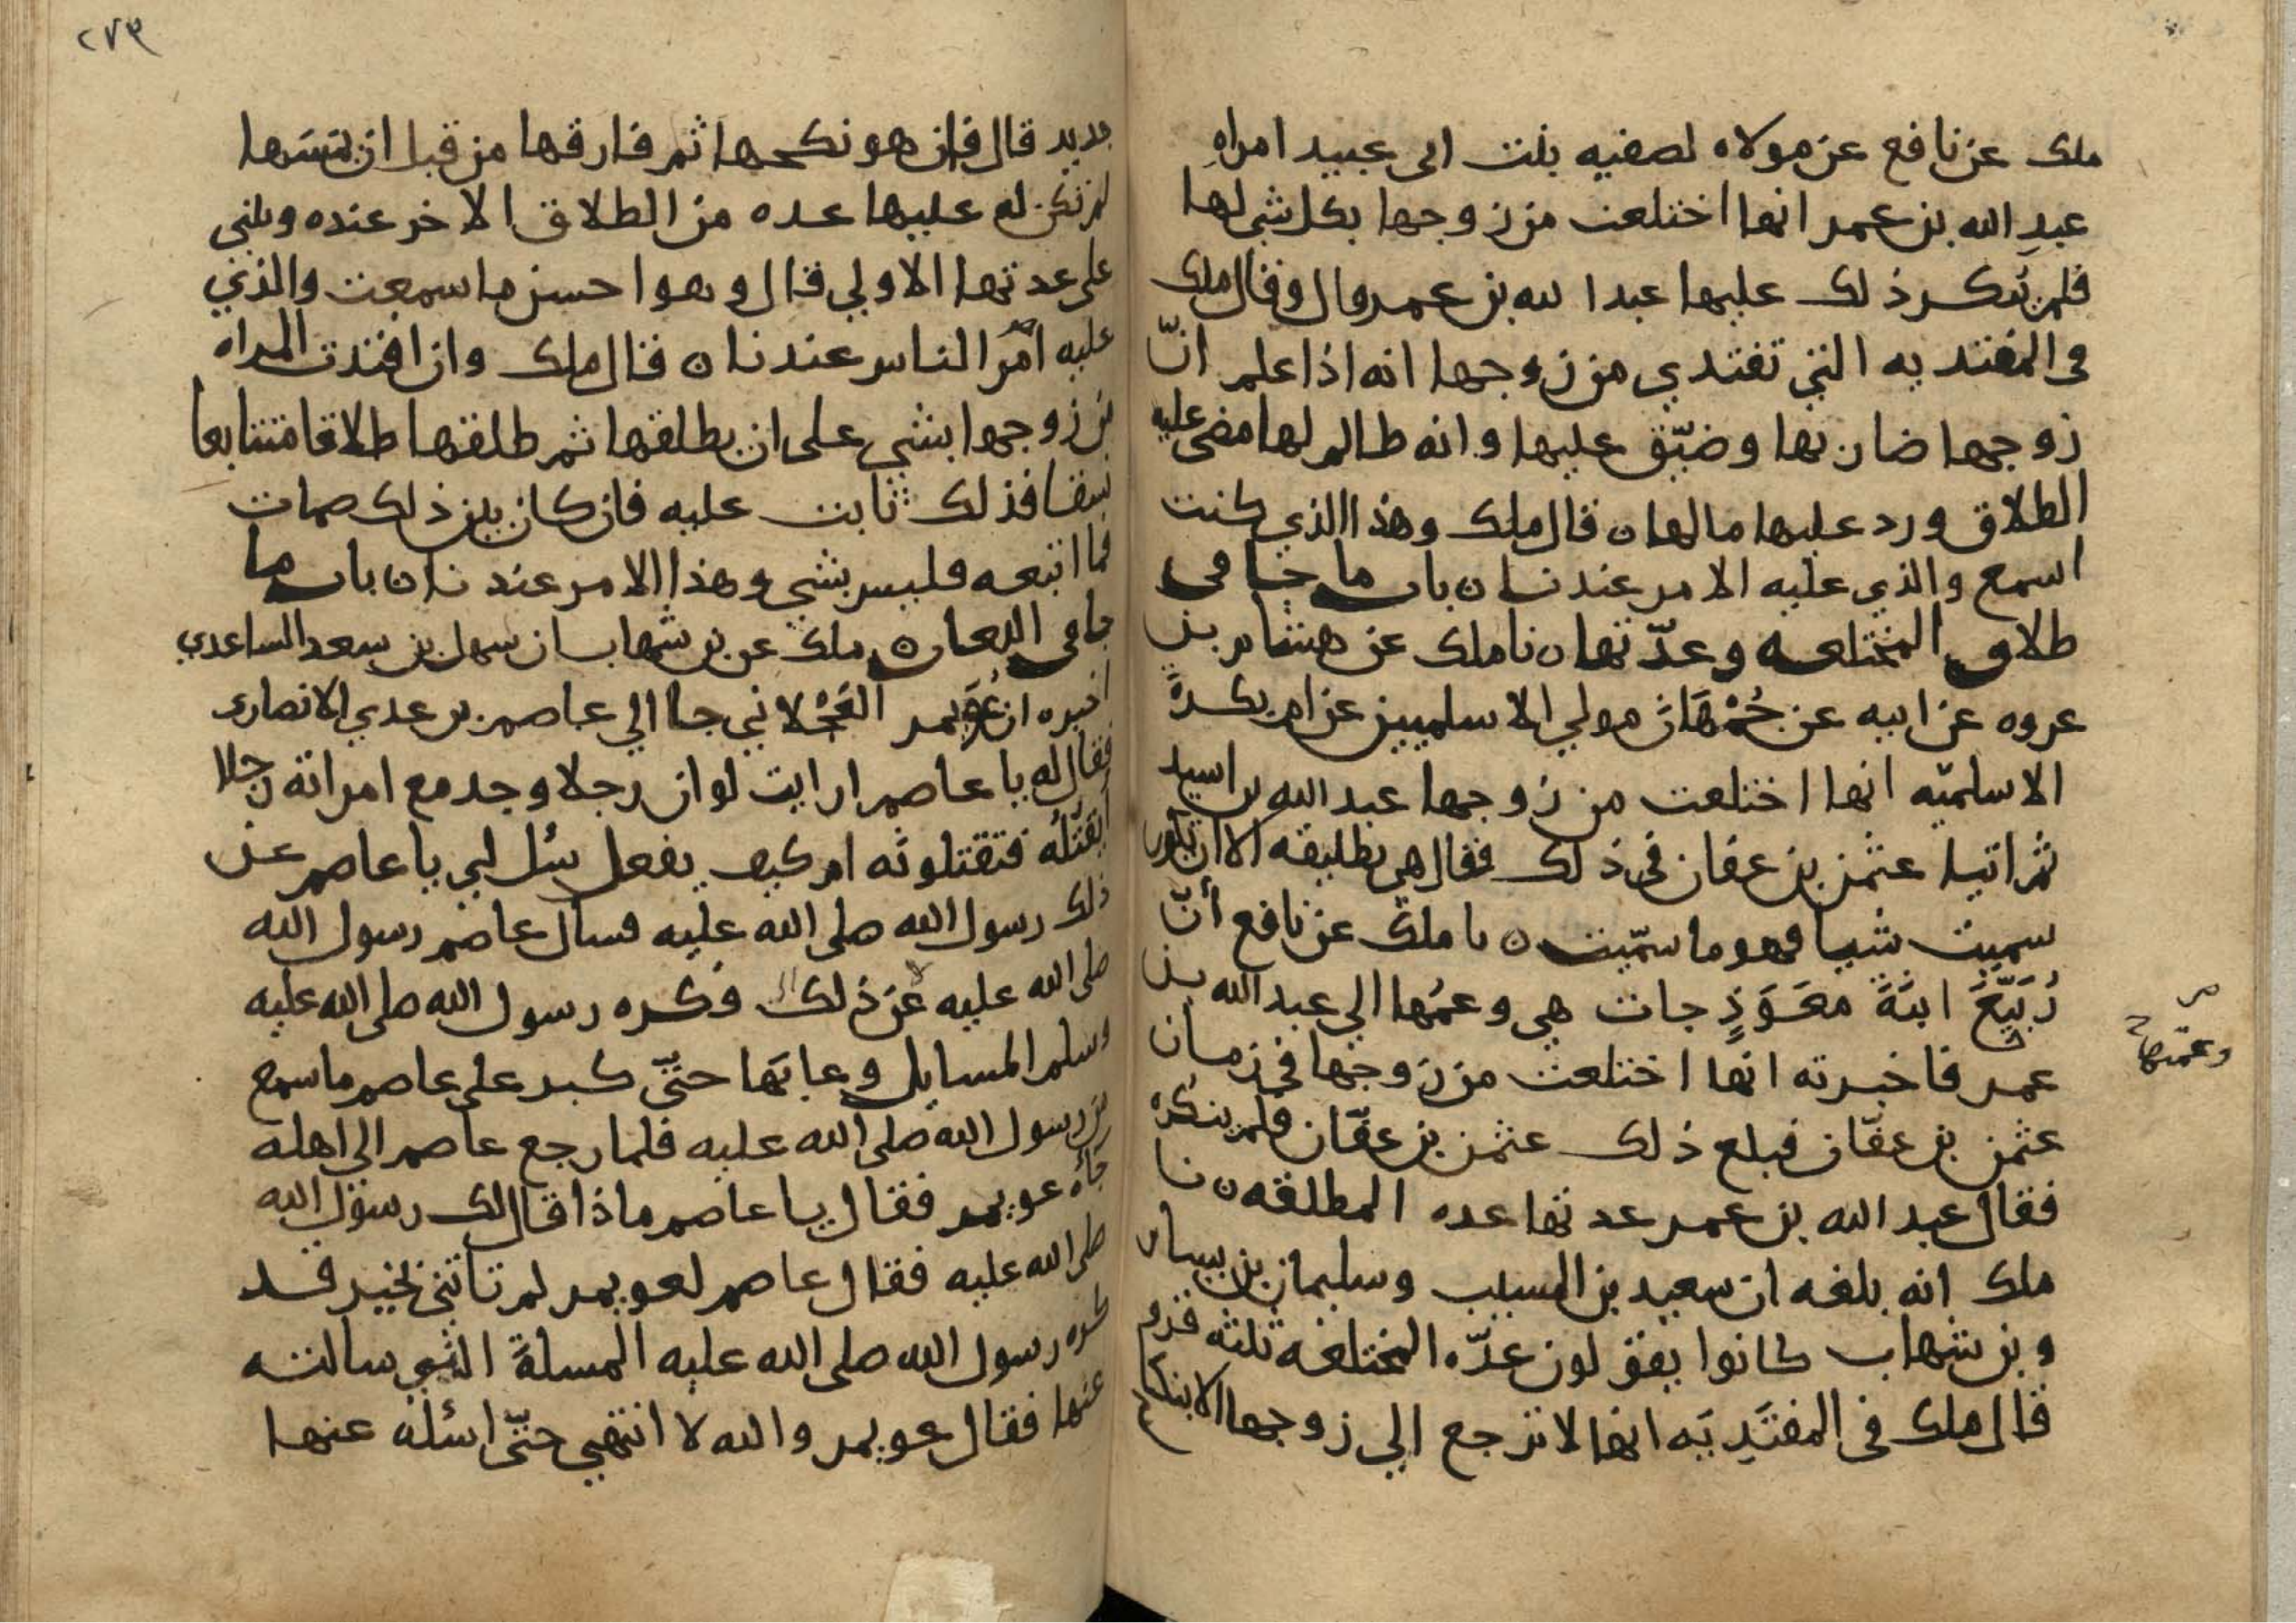 ملك عن نافع عن مولاه لصفيه بنت ابى عبيد امراهِ
عبدِ الله بن عمر انها اختلعت من زوجها بكل شي لها
فلم يُنكر ذلك عليها عبد الله بن عمر قال وقال ملك
فى المفتديه التي تفتدي من زوجها انه اذا علم انّ
زوجها ضار بها وضيّق عليها وانه ظالم لها مضى عليه
الطلاق ورد عليها مالها ٥ قال ملك وهذا الذي كنت
اسمع والذي عليه الامر عندنا ٥ باب ما جا فى
طلاق المختلعه وعدّتها ٥ نا ملك عن هشام بن
عروه عن ابيه عن جُمْهَان مولي الاسلميين عن ام بكرةَ
الاسلميّه انها اختلعت من زوجها عبد الله بن اسيد
ثم اتيا عثمن بن عفان فى ذلك فقال هي تطليقه الا ان تكون
سميت شيا فهو ما سمّيت ٥ نا ملك عن نافع أنّ
رُبَيّعَ ابنةَ مَعَوَذٍ جات هي وعمُها الي عبد الله بن
عمر فاخبرته انها اختلعت من زوجها في زمان
عثمن بن عفّان فبلغ ذلك عثمن بن عفّان فلم ينكره
فقال عبد الله بن عمر عدتها عده المطلقه ٥ نا
ملك انه بلغه ان سعيد بن المسيب وسليمان بن يسار
وبن شهاب كانوا يقولون عدّه المختلعه ثلثه قرو
قال ملك فى المفتَدِيَه انها لا ترجع الي زوجها الا بنكاح
وعمتها
٢٧٣
جديد قال فان هو نكحها ثم فارقها من قبل ان يمسَها
لم تكن له عليها عده من الطلاق الاخر عنده وتبني
على عدتها الاولي قال وهو احسن ما سمعت والذي
عليه امْر الناس عندنا ٥ قال ملك وان افتدت المراه
من زوجها بشي على ان يطلقها ثم طلقها طلاقا متتابعا
نسقا فذلك ثابت عليه فان كان بين ذلك صمات
فما اتبعه فليس بشي وهذا الامر عندنا ٥ باب ما
جا فى اللعان ٥ ملك عن بن شهاب ان سهل بن سعد الساعدي
اخبره ان عُوَيمر العَجْلاني جا الي عاصم بن عدي الانصارى
فقال له يا عاصم ارايت لو ان رجلا وجد مع امراته رجلا
أيقتلُه فتقتلونه ام كيف يفعل سُل لي يا عاصم عن
ذلك رسول الله صلى الله عليه فسال عاصم رسول الله
صلى الله عليه عن ذلك فكره رسول الله صلى الله عليه
وسلم المسايل وعابَها حتّى كبر على عاصم ما سمع
من رسول الله صلى الله عليه فلما رجع عاصم الي اهله
جاه عويمر فقال يا عاصم ماذا قال لك رسول الله
صلى الله عليه فقال عاصم لعويمر لم تاتني بخير قد
كره رسول الله صلى الله عليه المسلةَ التي سالته
عنها فقال عويمر والله لا انتهي حتّى اسئله عنها